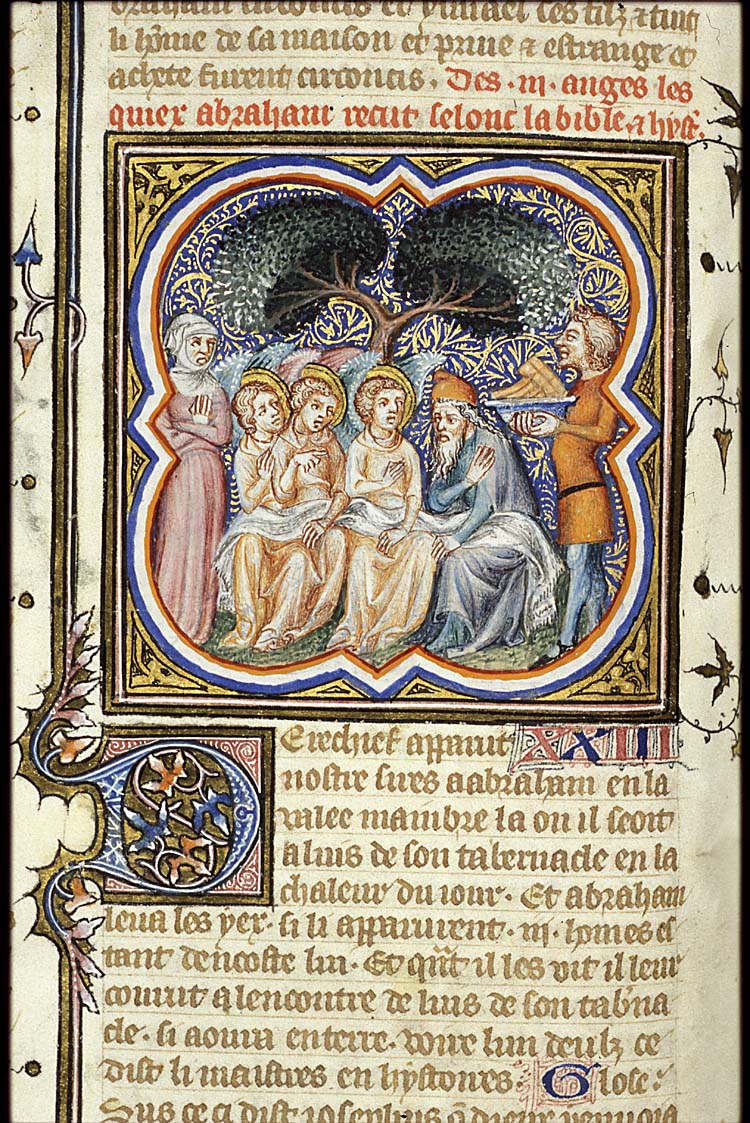 braham circoncis et ysmael ses filz & tuit
li hõme de sa maison et priue & estrange et
achete furent circoncis. Des .iii. anges les
quiex abraham recut selonc la bible & hyst.
Derechief apparut XXIII
nostre sires a abraham en la
valee mambre la ou il seoit
a luis de son tabernacle en la
chaleur du iour. Et abraham
leua les yex. si li apparurent .iii. hõmes es
tant dencoste lui. Et qñt il les vit il leur
courut a lencontre de luis de son tab'na
cle. si aoura en terre. voire lun deulz ce
dist li maistres en hystoires. Glose.
Sus ce ci dist iosephus q̃ dieux